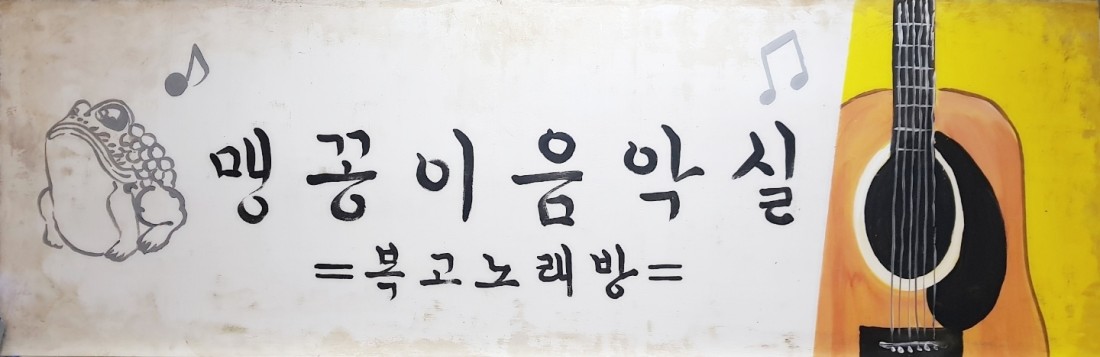 맹꽁이음악실
=복고노래방=